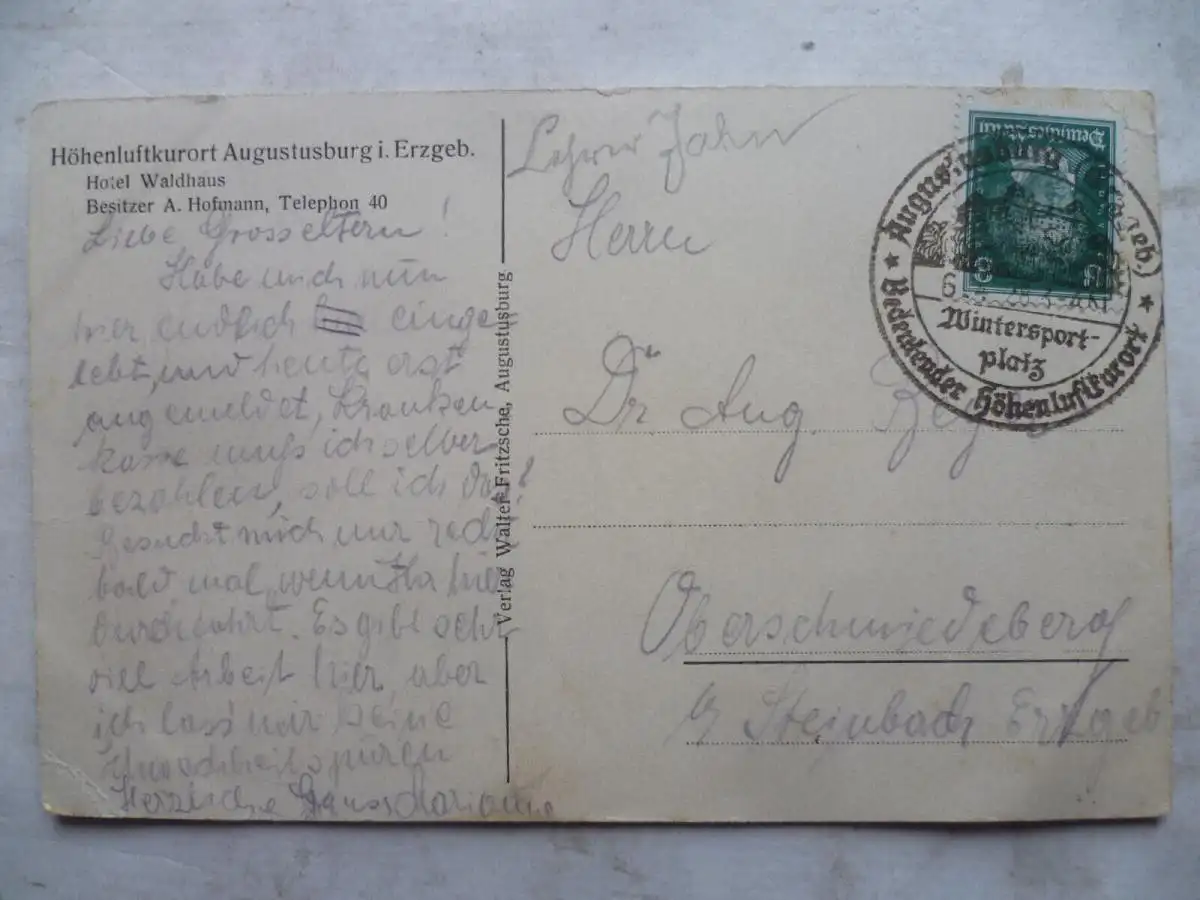 Höhenluftkurort Augustusburg i. Erzgeb.
Hotel Waldhaus
Besitzer A. Hofmann, Telephon 40
Liebe Grosseltern!
Habe mich nun
hier endlich einge
lebt, und heute erst
angemeldet, Kranken
kasse muss ich selber
bezahlen, soll ich das?
Besucht mich nur recht
bald mal, wenn Ihr hier
durchfahrt. Es gibt sehr
viel Arbeit hier, aber
ich lass mir keine
spüren
Herzliche Marianne
Verlag Walter Fritzsche, Augustusburg
Lehrer Jahn
Herrn
Dr Aug.
Oberschmiedeberg
Steinbach Erzgeb
Deutsches Reich
8
Augustusburg (Erzgeb.)
6
Wintersport-
platz
Bedeutender Höhenluftkurort